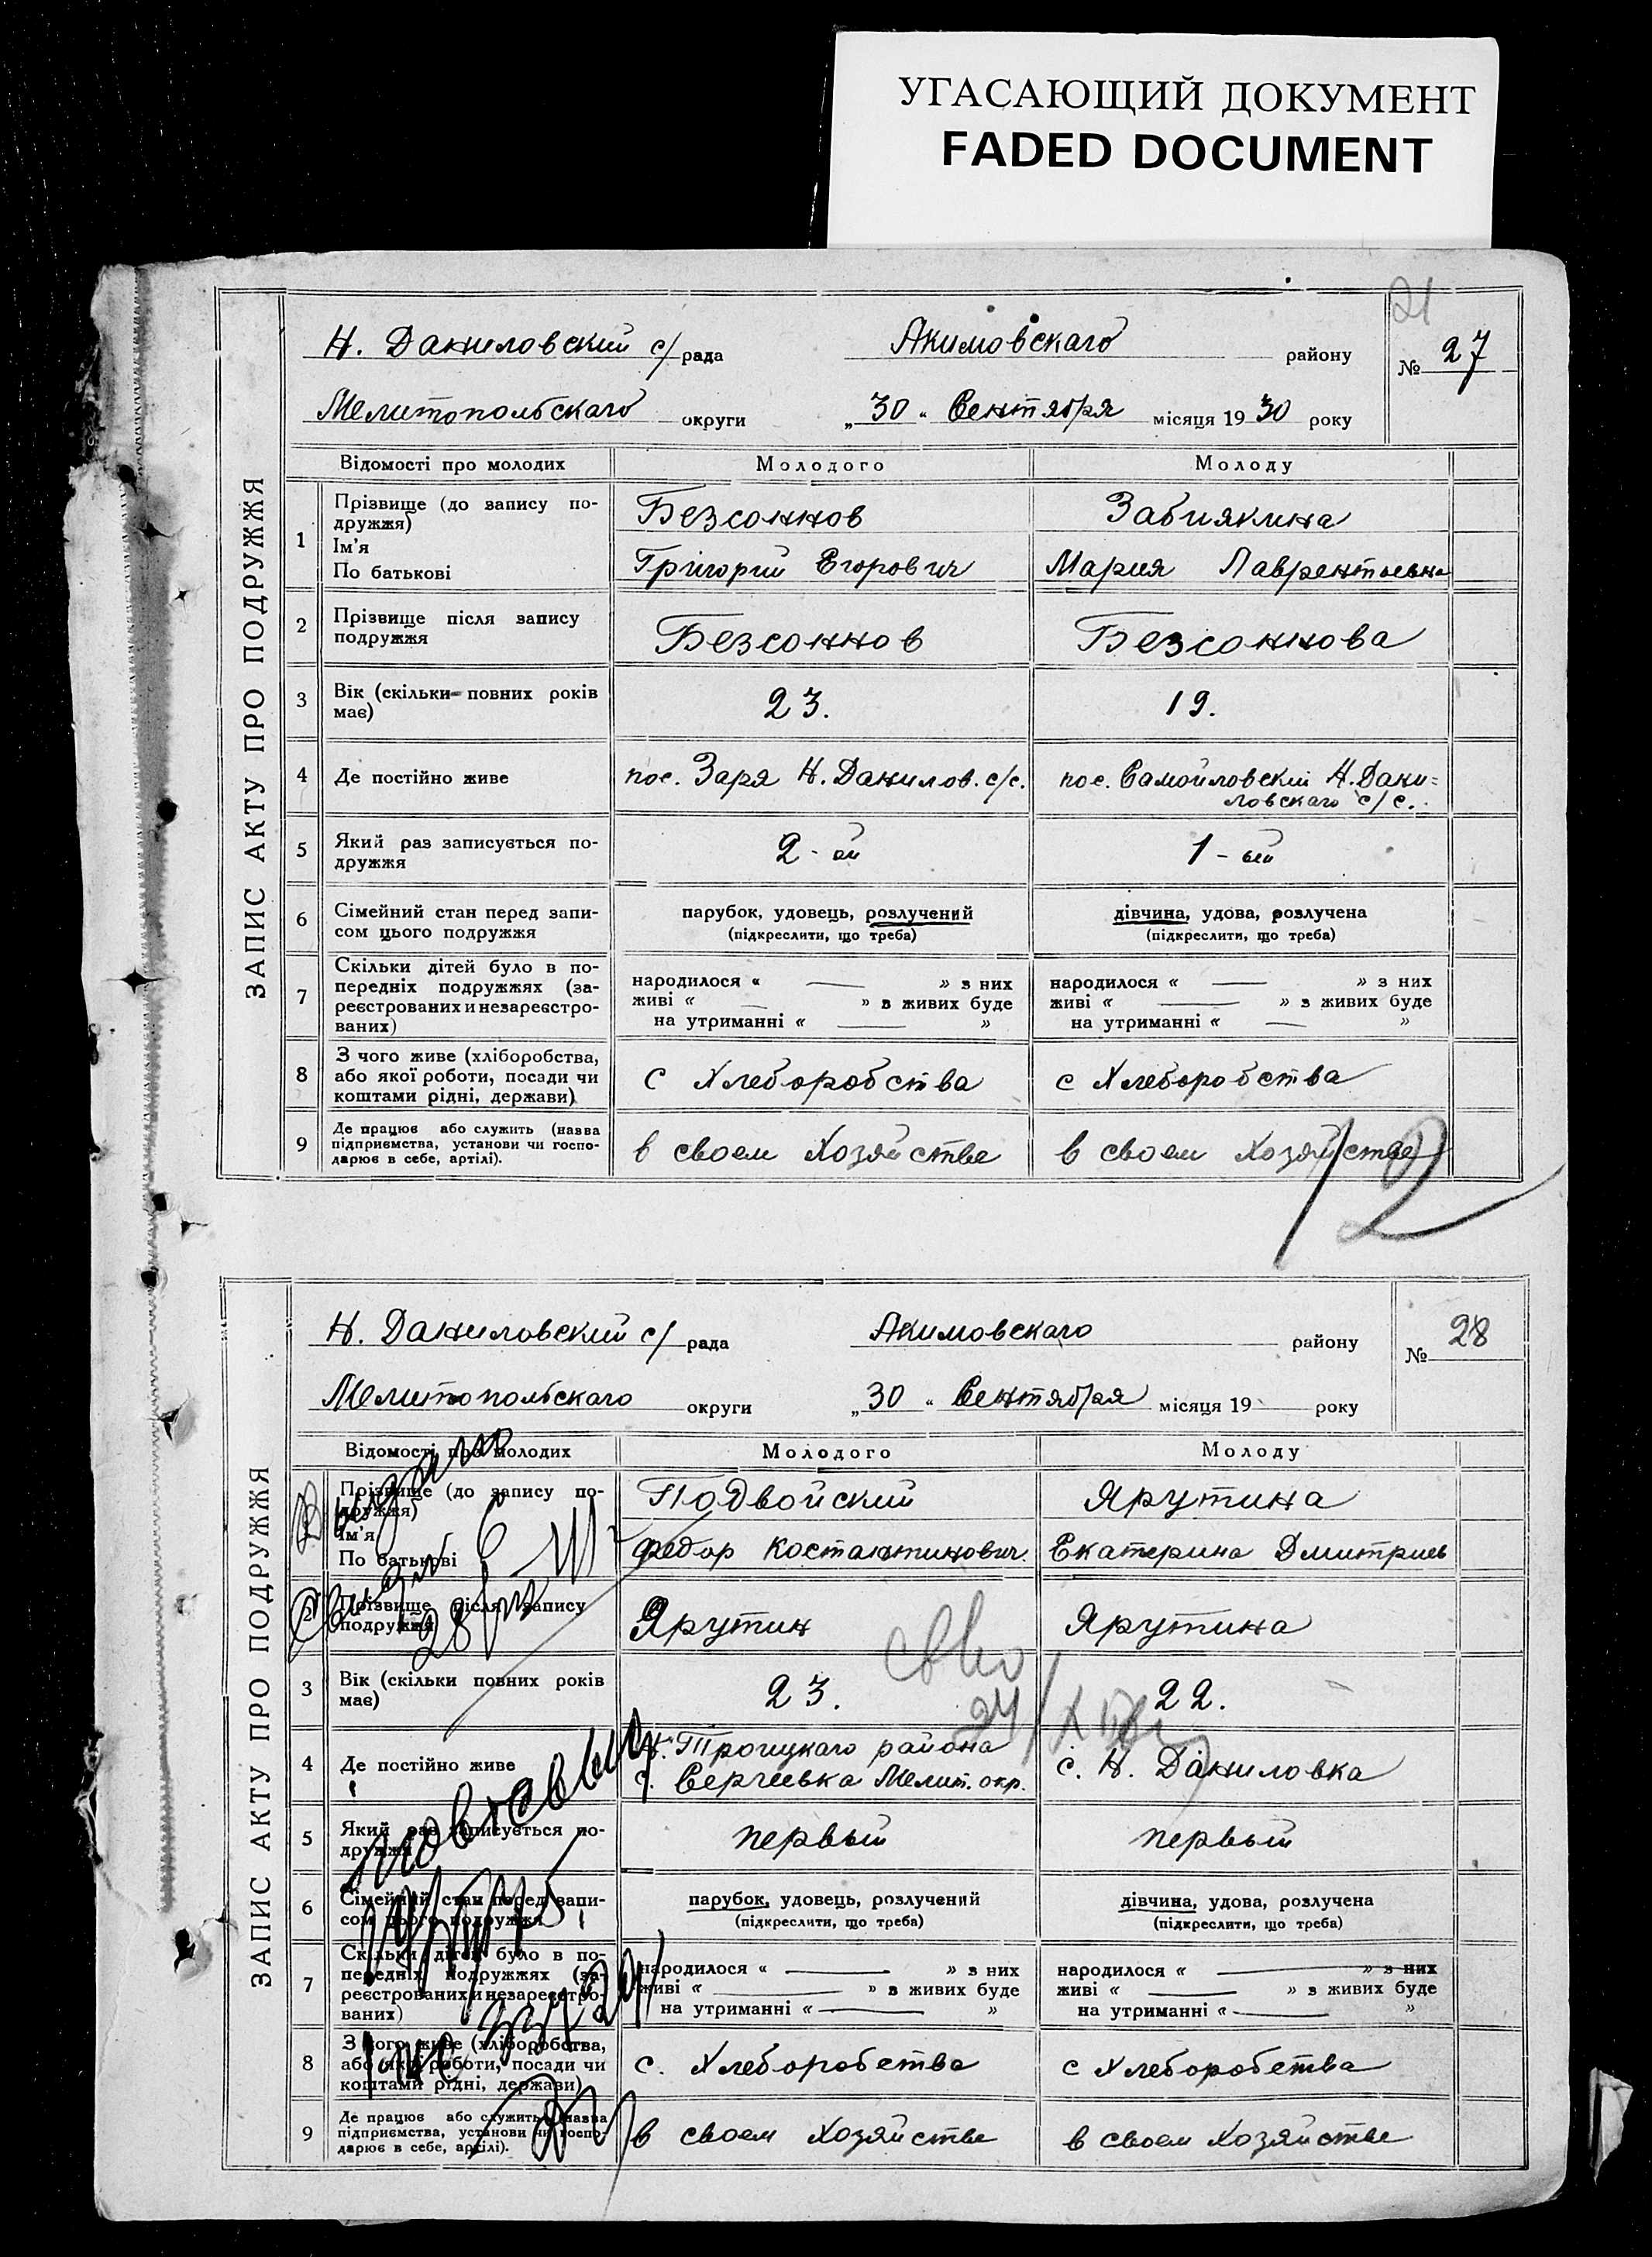 УГАСАЮЩИЙ ДОКУМЕНТ
FADED DOCUMENT
21
Н. Даниловский с/ рада Акимовскаго району № 27
Мелитопольскаго округи „30“ Сентября місяця 1930 року
ЗАПИС АКТУ ПРО ПОДРУЖЖЯ
Відомості про молодих Молодого Молоду
1 Прізвище (до запису по- Безсоннов Забиякина
дружжя)
Ім'я Григорий Егорович Мария Лаврентьевна
По батькові
2 Прізвище після запису Безсоннов Безсоннова
подружжя
3 Вік (скільки повних років 23. 19.
має)
4 Де постійно живе пос. Заря Н. Данилов. с/с. пос. Самойловский Н. Дани=
ловскаго с/с.
5 Який раз записується по- 2-ой 1-ый
дружжя
6 Сімейний стан перед запи- парубок, удовець, розлучений дівчина, удова, розлучена
сом цього подружжя (підкреслити, що треба) (підкреслити, що треба)
7 Скільки дітей було в по- народилося « — » з них народилося « — » з них
передніх подружжях (за- живі « — » з живих буде живі « — » з живих буде
реєстрованих и незареєстро- на утриманні « — » на утриманні « — »
ваних)
8 З чого живе (хліборобства, с Хлеборобства с Хлеборобства
або якої роботи, посади чи
коштами рідні, держави)
9 Де працює або служить (назва в своем Хозяйстве в своем Хозяйстве
підприємства, установи чи госпо-
дарює в себе, артілі).
12
Н. Даниловский с/ рада Акимовскаго району № 28
Мелитопольскаго округи „30“ Сентября місяця 19 року
ЗАПИС АКТУ ПРО ПОДРУЖЖЯ
Відомості про молодих Молодого Молоду
Прізвище (до запису по- Подвойский Ярутина
дружжя)
Ім'я Федор Костантинович. Екатерина Дмитриев
По батькові
2 Прізвище після запису Ярутин Ярутина
подружжя
3 Вік (скільки повних років 23. 22.
має)
4 Де постійно живе Н. Троицкаго района с. Н. Даниловка
с. Сергеевка Мелит. окр.
5 Який раз записується по- первый первый
дружжя
6 Сімейний стан перед запи- парубок, удовець, розлучений дівчина, удова, розлучена
сом цього подружжя (підкреслити, що треба) (підкреслити, що треба)
7 Скільки дітей було в по- народилося « — » з них народилося « — » з них
передніх подружжях (за- живі « — » з живих буде живі « — » з живих буде
реєстрованих и незареєстро- на утриманні « — » на утриманні « — »
ваних)
8 З чого живе (хліборобства, с. Хлеборобства с Хлеборобства
або якої роботи, посади чи
коштами рідні, держави)
9 Де працює або служить (назва в своем Хозяйстве в своем Хозяйстве
підприємства, установи чи госпо-
дарює в себе, артілі).